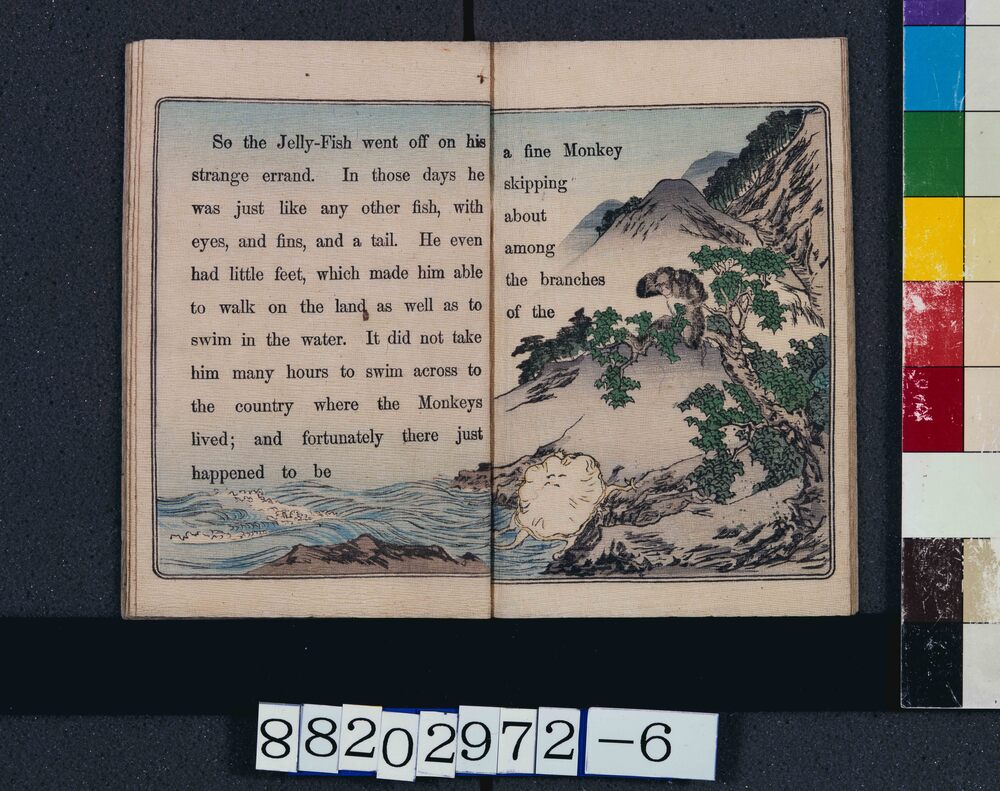 So the Jelly-Fish went off on his
strange errand. In those days he
was just like any other fish, with
eyes, and fins, and a tail. He even
had little feet, which made him able
to walk on the land as well as to
swim in the water. It did not take
him many hours to swim across to
the country where the Monkeys
lived; and fortunately there just
happened to be
a fine Monkey
skipping
about
among
the branches
of the
88202972-6